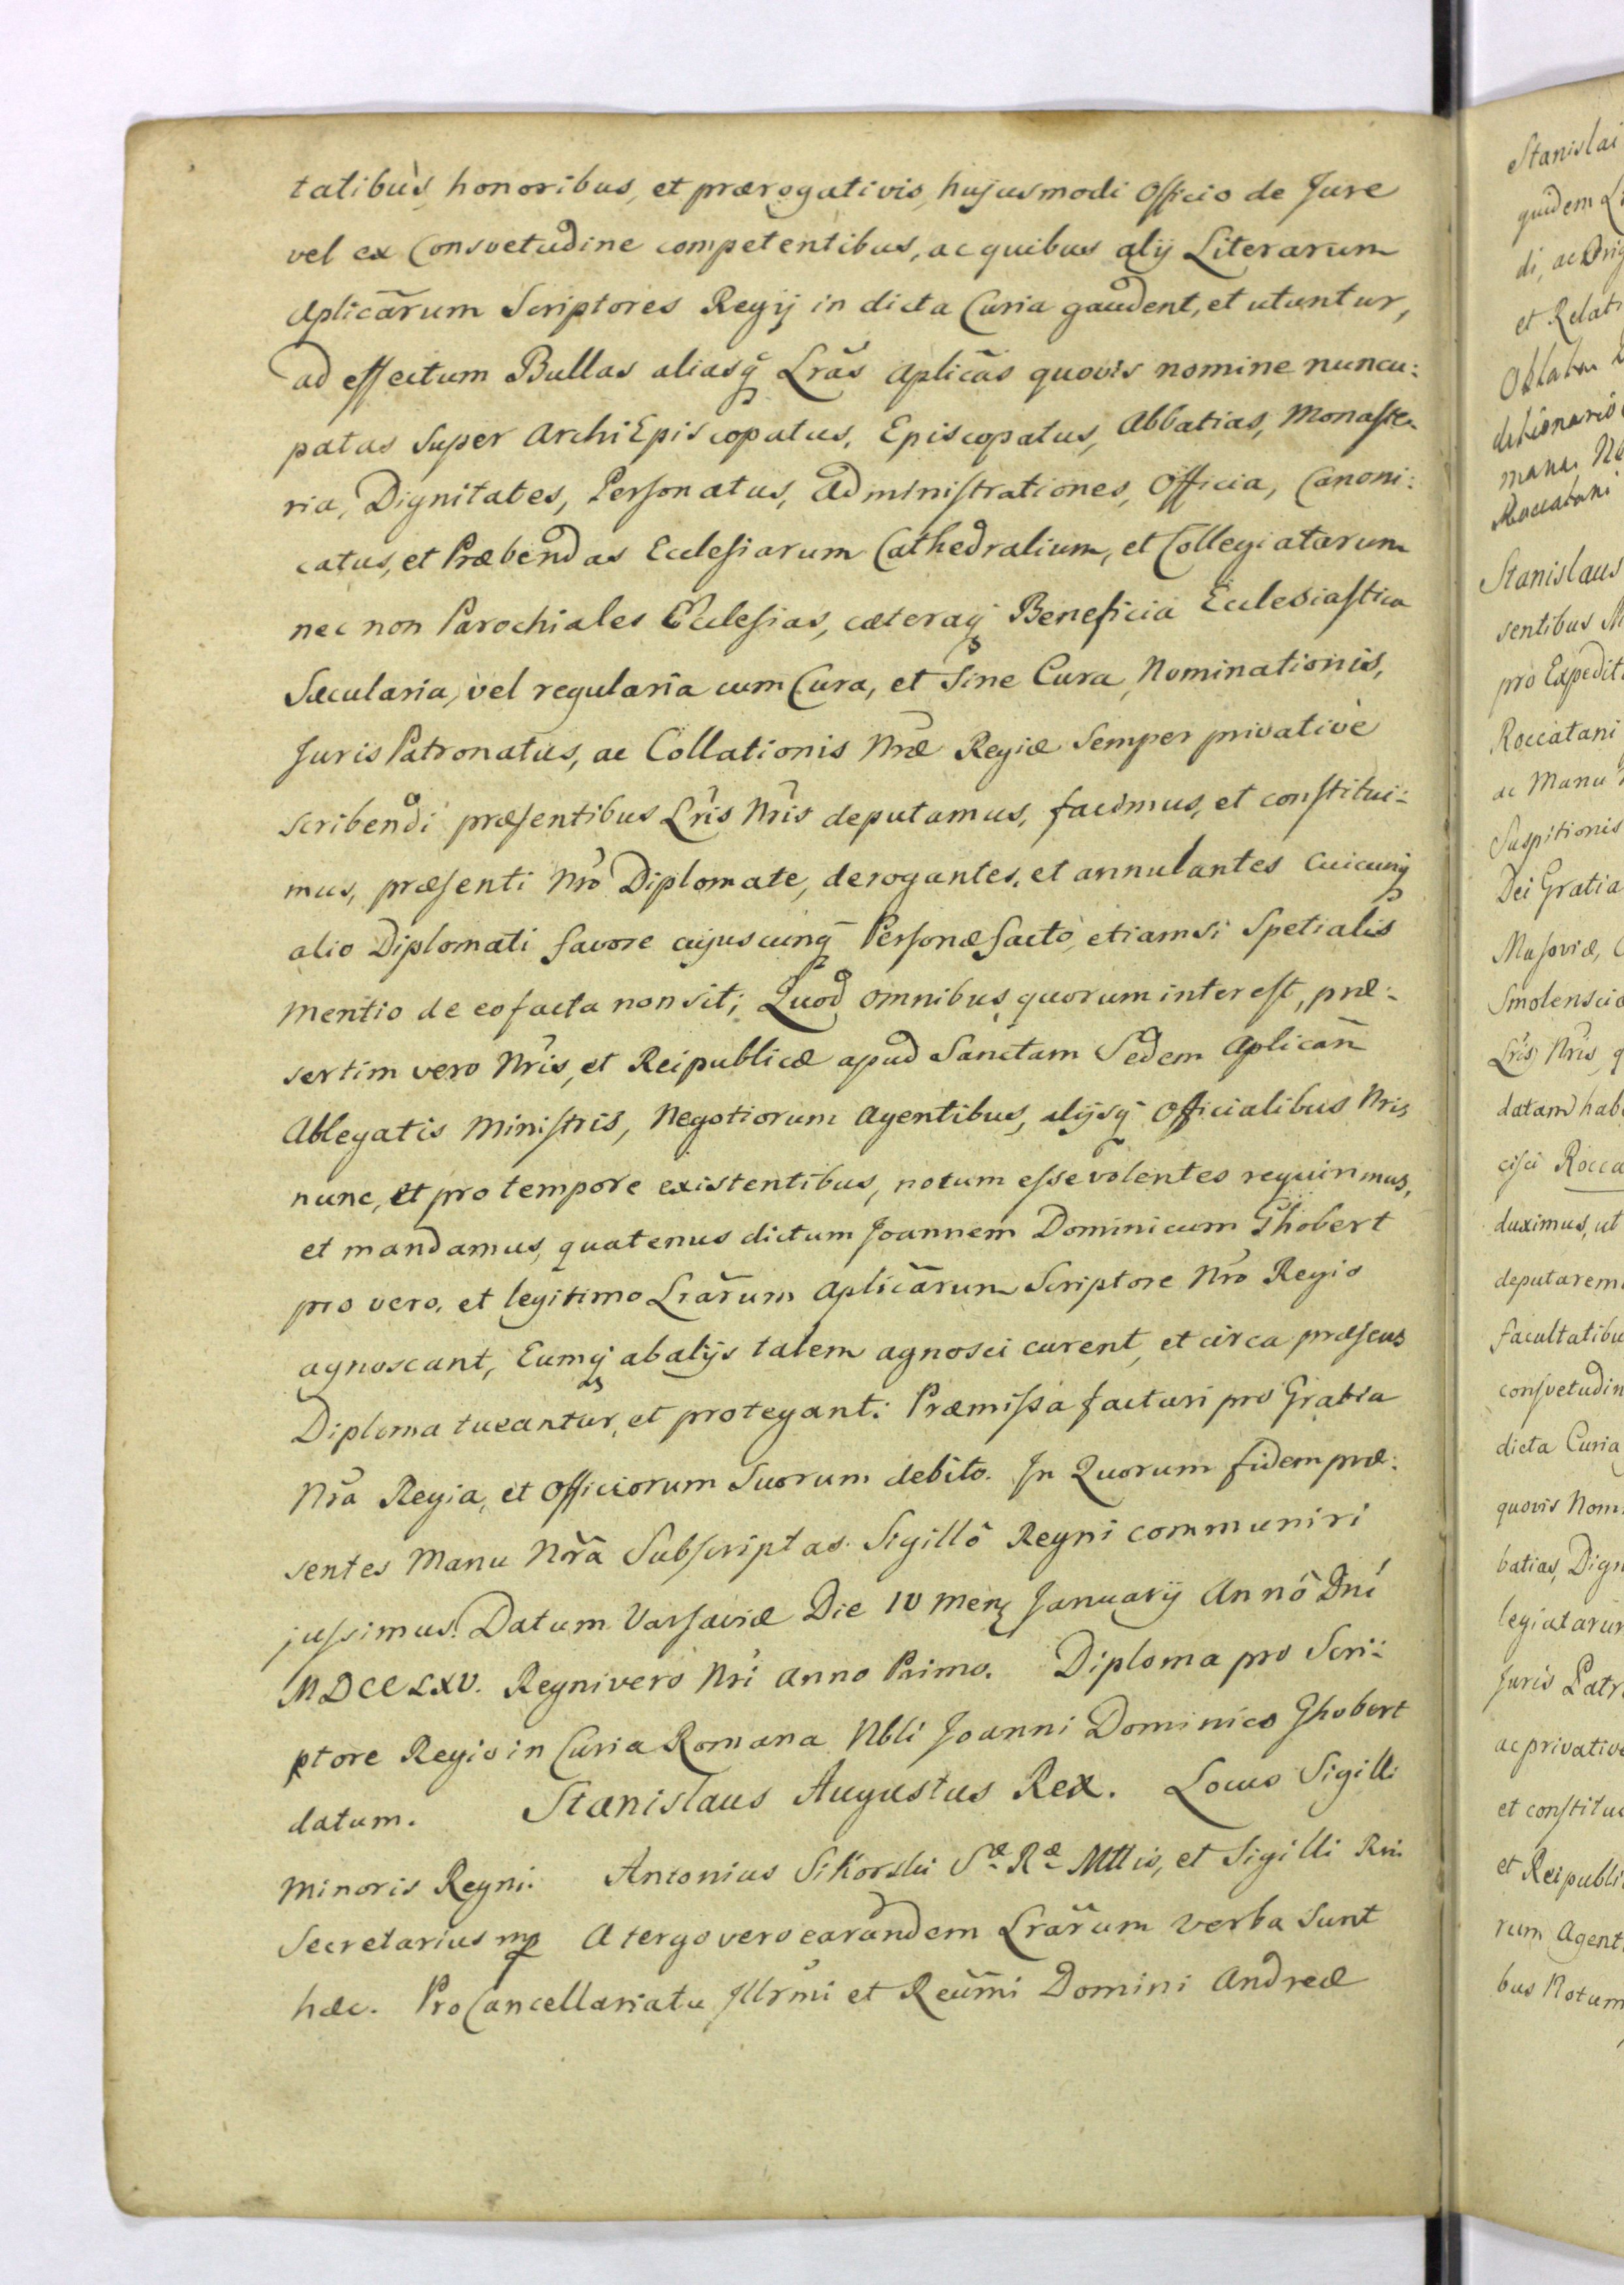 tatibus, honoribus, et prærogativis, hujusmodi Officio de Jure
vel ex Consvetudine competentibus, ac quibus alij Literarum
Aplicārum Scriptores Regij in dicta Curia gaudent, et utuntur,
ad effectum Bullas aliasq̃ Lr̃as Aplicãs quovis nomine nuncu:
patas Super ArchiEpiscopatus, Episcopatus, Abbatias, Monaste-
ria, Dignitates, Personatus, Administrationes, Officia, Canoni:
catus, et Præbendas Ecclesiarum Cathedralium, et Collegiatarum
nec non Parochiales Ecclesias, cæteraq̃ Beneficia Ecclesiastica
Sæcularia, vel regularia cum Cura, et Sine Cura, Nominationis,
Juris Patronatus, ac Collationis Nr̃æ Regiæ Semper privativè
scribendi præsentibus Lr̃is Nr̃is deputamus, facimus, et constitui:
mus, præsenti Nr̃o Diplomate, derogantes, et annulantes Cuicunq̃
alio Diplomati favore cujuscunq̃ Personæ facto, etiamsi Spetialis
mentio de eo facta non sit; Quod omnibus, quorum interest, præ:
sertim vero Nr̃is, et Reipublicæ apud Sanctam Sedem Aplicañ
Ablegatis Ministris, Negotiorum Agentibus, alijsq̃ Officialibus Nris
nunc, et pro tempore existentibus, notum esse volentes requirimus,
et mandamus, quatenus dictum Joannem Dominicum Ghobert
pro vero, et legitimo Lrãrum Aplicãrum Scriptore Nr̃o Regio
agnoscant, Eumq̃ ab alijs talem agnosci curent, et circa præsens
Diploma tueantur, et protegant: Præmissa facturi pro Gratia
Nr̃a Regia, et Officiorum Suorum debito. In Quorum fidem præ:
sentes Manu Nr̃a Subscriptas Sigillô Regni communiri
jussimus. Datum Varsaviæ Die 10 menȝ Januarij Annô Dñi
MDCCLXV. Regni vero Nr̃i Anno Primo. Diploma pro Scri:
ptore Regio in Curia Romana Nbli Joanni Dominico Ghobert
datum. Stanislaus Augustus Rex. Locus Sigilli
Minoris Regni. Antonius Sikorski Sæ Ræ Mttis, et Sigilli Rni
Secretarius mp A tergo vero earundem Lrãrum verba Sunt
hæc. Pro Cancellariatu Jllr̃mi et Reũmi Domini Andreæ
Stanislai
quidem
et Relati
Stanislaus
sentibus
pro Expedit
Roccatani
ac Manu
Suspitionis
Dei Gratia
Masoviæ,
Smolensciæ
Lr̃is Nr̃is,
datam hab
Rocca
duximus, ut
deputarem
facultatibu
consvetudin
dicta Curia
quovis Nom
batias, Dign
legiatarum
Juris Patr
ac privative
et constitu
et Reipubli
rum Agent
bus Notum